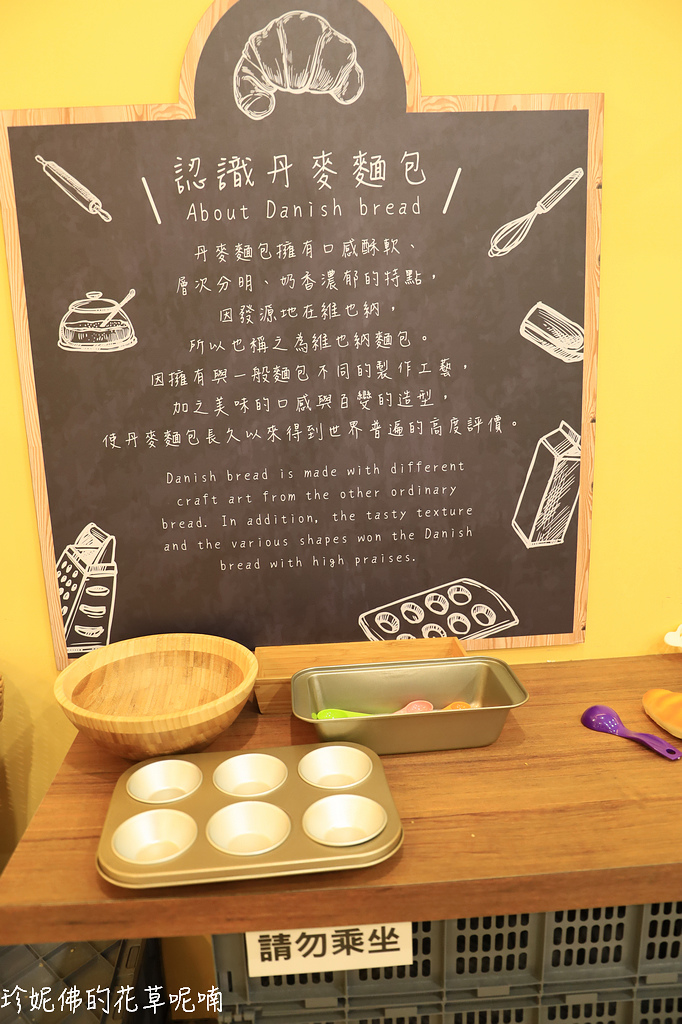 認識丹麥麵包
About Danish bread
丹麥麵包擁有口感酥軟、
層次分明、奶香濃郁的特點，
因發源地在維也納，
所以也稱之為維也納麵包。
因擁有與一般麵包不同的製作工藝，
加之美味的口感與百變的造型，
使丹麥麵包長久以來得到世界普遍的高度評價。
Danish bread is made with different
craft art from the other ordinary
bread. In addition, the tasty texture
and the various shapes won the Danish
bread with high praises.
請勿乘坐
珍妮佛的花草呢喃